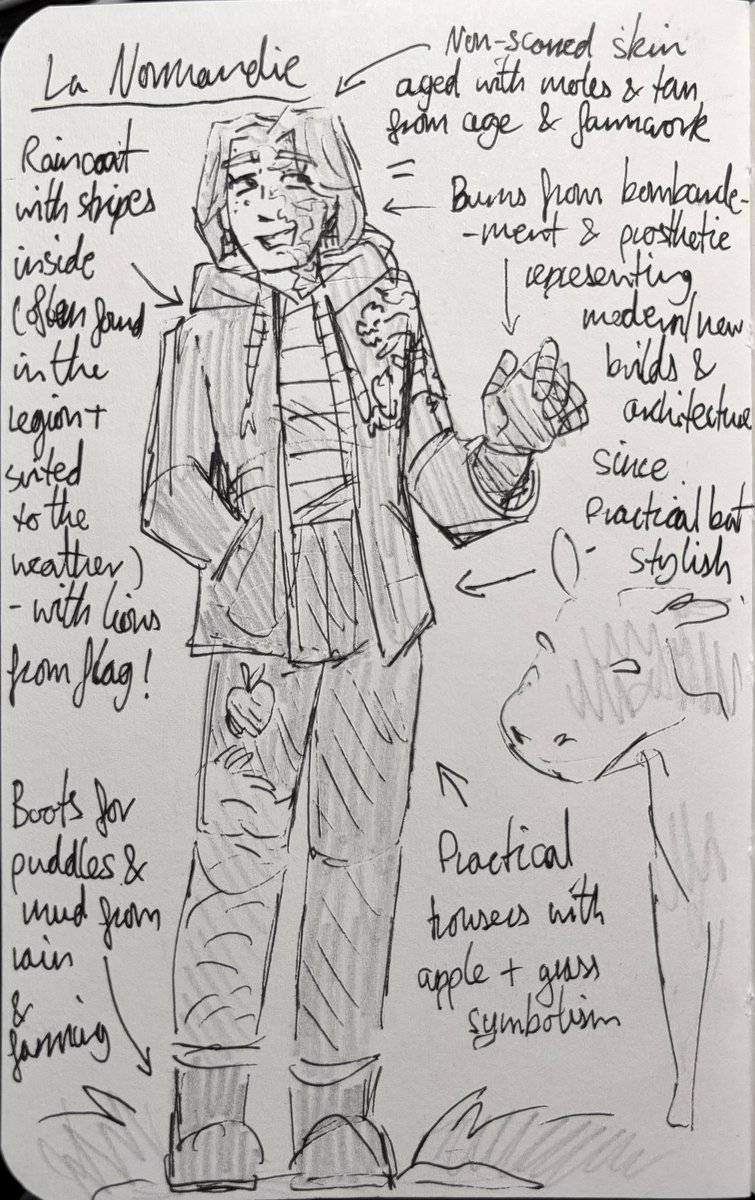 La Normandie
Non-scarred skin
aged with moles & tan
from age & farmwork
=
Burns from bombarde-
-ment & prosthetic
representing
modern/new
builds &
architecture
since
Raincoat
with stripes
inside
(often found
in the
region +
suited
to the
weather)
- with lions
from flag!
Practical but
stylish
Boots for
puddles &
mud from
rain
&
farming
Practical
trousers with
apple + grass
symbolism